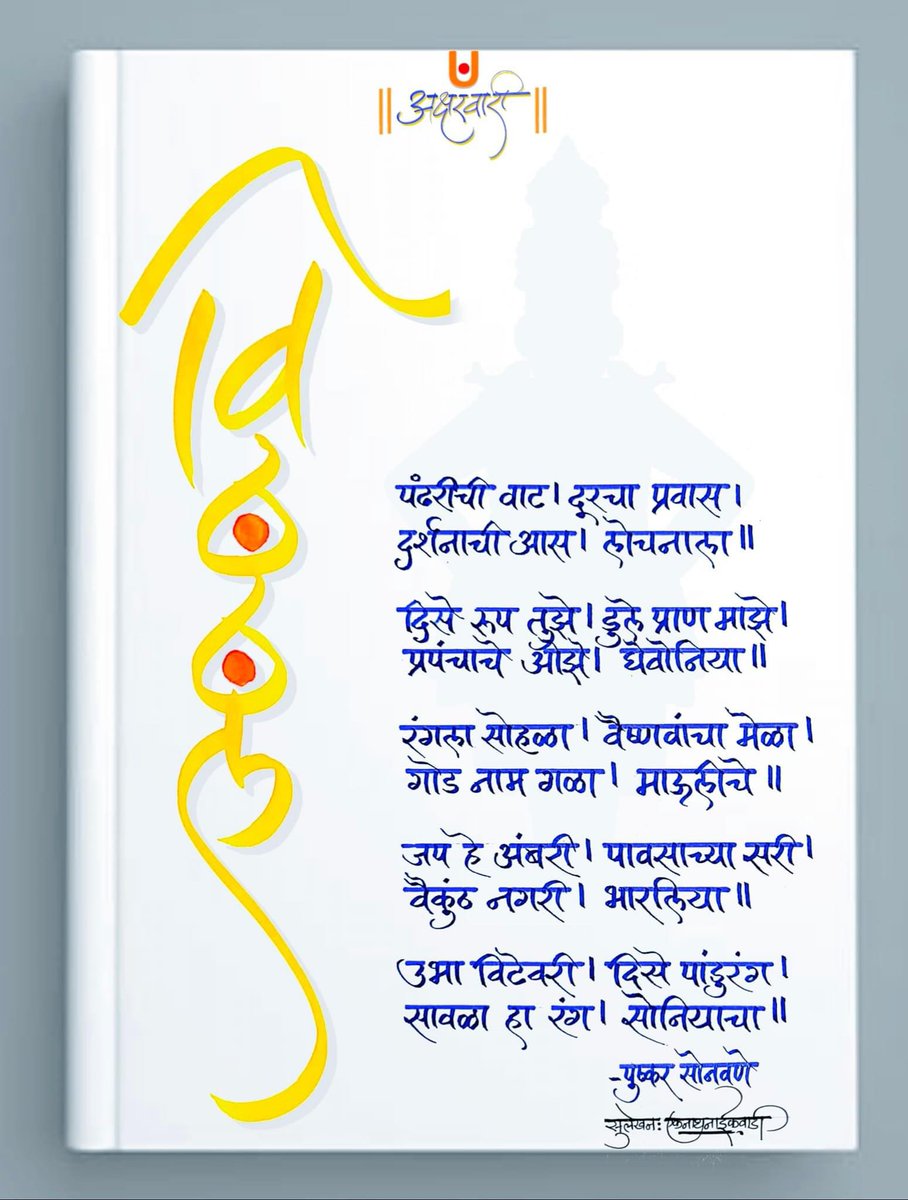 || अक्षरवारी ||
विठ्ठल
पंढरीची वाट। दूरचा प्रवास।
दर्शनाची आस। लोचनाला॥
दिसे रूप तुझे। डुले प्राण माझे।
प्रपंचाचे ओझे। घेवोनिया॥
रंगला सोहळा। वैष्णवांचा मेळा।
गोड नाम गळा। माऊलीचे॥
जप हे अंबरी। पावसाच्या सरी।
वैकुंठ नगरी। भारलिया॥
उभा विटेवरी। दिसे पांडुरंग।
सावळा हा रंग। सोनियाचा॥
-पुष्कर सोनवणे
सुलेखन: